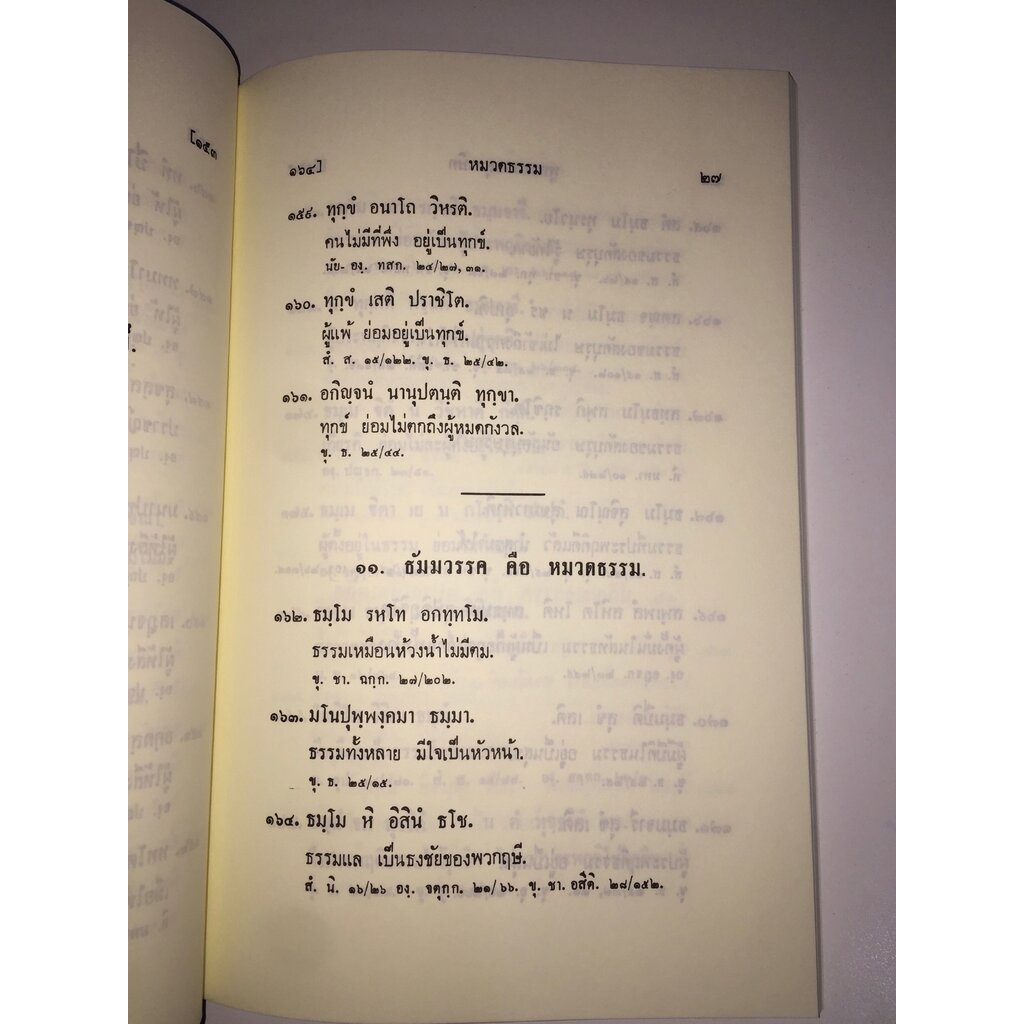 [๑๕๓
๑๖๔]
หมวดธรรม
๒๗
๑๕๙. ทุกฺขํ อนาโถ วิหรติ.
คนไม่มีที่พึ่ง อยู่เป็นทุกข์.
นัย- องฺ. ทสก. ๒๔/๒๗, ๓๑.
๑๖๐. ทุกฺขํ เสติ ปราชิโต.
ผู้แพ้ ย่อมอยู่เป็นทุกข์.
สํ. ส. ๑๕/๑๒๒. ขุ. ธ. ๒๕/๔๒.
๑๖๑. อกิญฺจนํ นานุปตนฺติ ทุกฺขา.
ทุกข์ ย่อมไม่ตกถึงผู้หมดกังวล.
ขุ. ธ. ๒๕/๔๔.
๑๑. ธัมมวรรค คือ หมวดธรรม.
๑๖๒. ธมฺโม รหโท อกทฺทโม.
ธรรมเหมือนห้วงน้ำไม่มีตม.
ขุ. ชา. ฉกฺก. ๒๗/๒๐๒.
๑๖๓. มโนปุพฺพงฺคมา ธมฺมา.
ธรรมทั้งหลาย มีใจเป็นหัวหน้า.
ขุ. ธ. ๒๕/๑๕.
๑๖๔. ธมฺโม หิ อิสินํ ธโช.
ธรรมแล เป็นธงชัยของพวกฤษี.
สํ. นิ. ๑๖/๒๖ องฺ. จตุกฺก. ๒๑/๖๖. ขุ. ชา. อสีติ. ๒๘/๑๕๒.